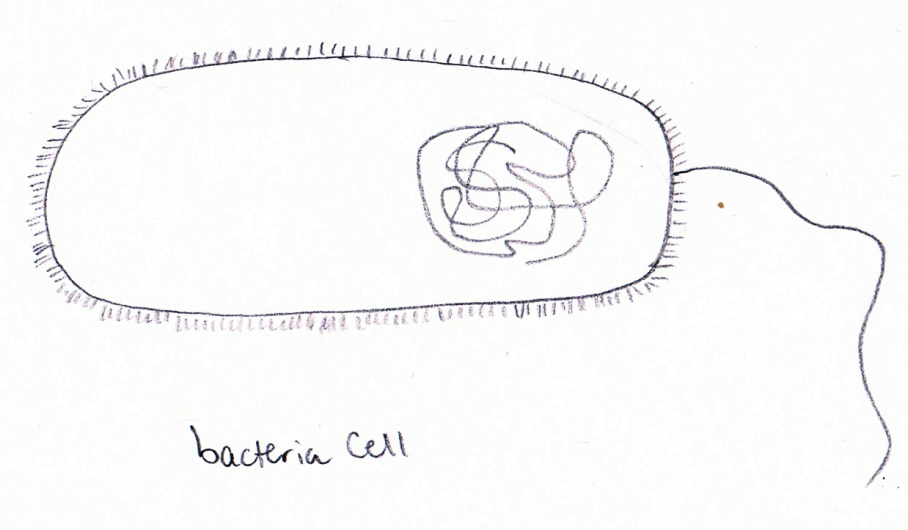 bacteria Cell